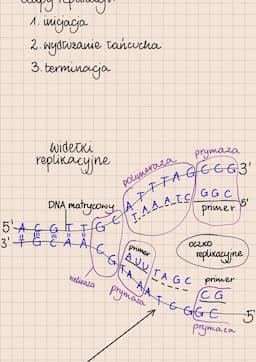 etapy replikacji
1. inicjacja
2. wydłużanie łańcucha
3. terminacja
widełki
replikacyjne
polimeraza
prymaza
A T T T A G C C G 3'
T A A A T C G G C 5'
primer
DNA matrycowy
5' A C G T T G C
3' T G C A A C G
helikaza
oczko
replikacyjne
primer
A U U T A G C
primer
C G
T A A A T C G G C 5'
prymaza
prymaza